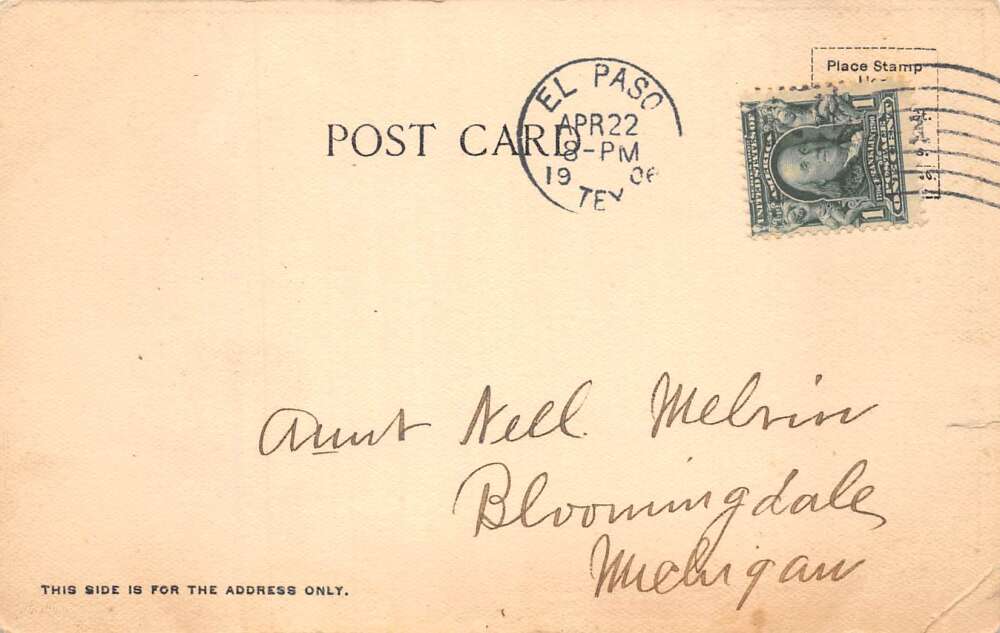 Place Stamp
EL PASO
APR 22
8-PM
19 06
TEX
POST CARD
1 1
Aunt Nell Melvin
Bloomingdale
Michigan
THIS SIDE IS FOR THE ADDRESS ONLY.